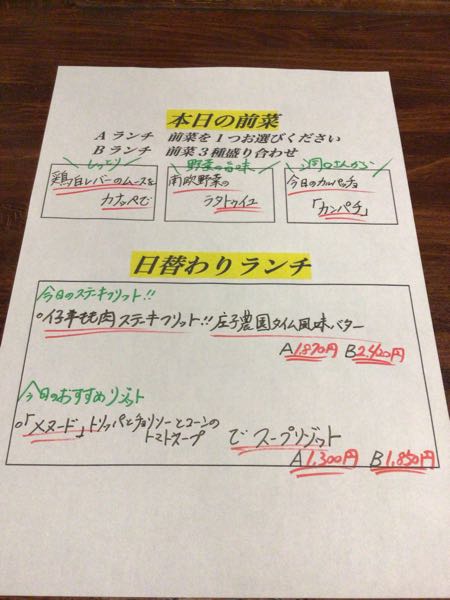 本日の前菜
Aランチ 前菜を1つお選びください
Bランチ 前菜3種盛り合わせ
しっとり
鶏白レバーのムースを
カナッペで
野菜の旨味
南欧野菜の
ラタトゥイユ
今日のカルパッチョ
「カンパチ」
日替わりランチ
今日のステーキフリット!!
仔牛モモ肉ステーキフリット!! 庄子農園タイム風味バター
A 1,870円 B 2,420円
今日のおすすめリゾット
「メヌード」トリッパとチョリソーとコーンの
トマトスープ
でスープリゾット
A 1,300円 B 1,850円